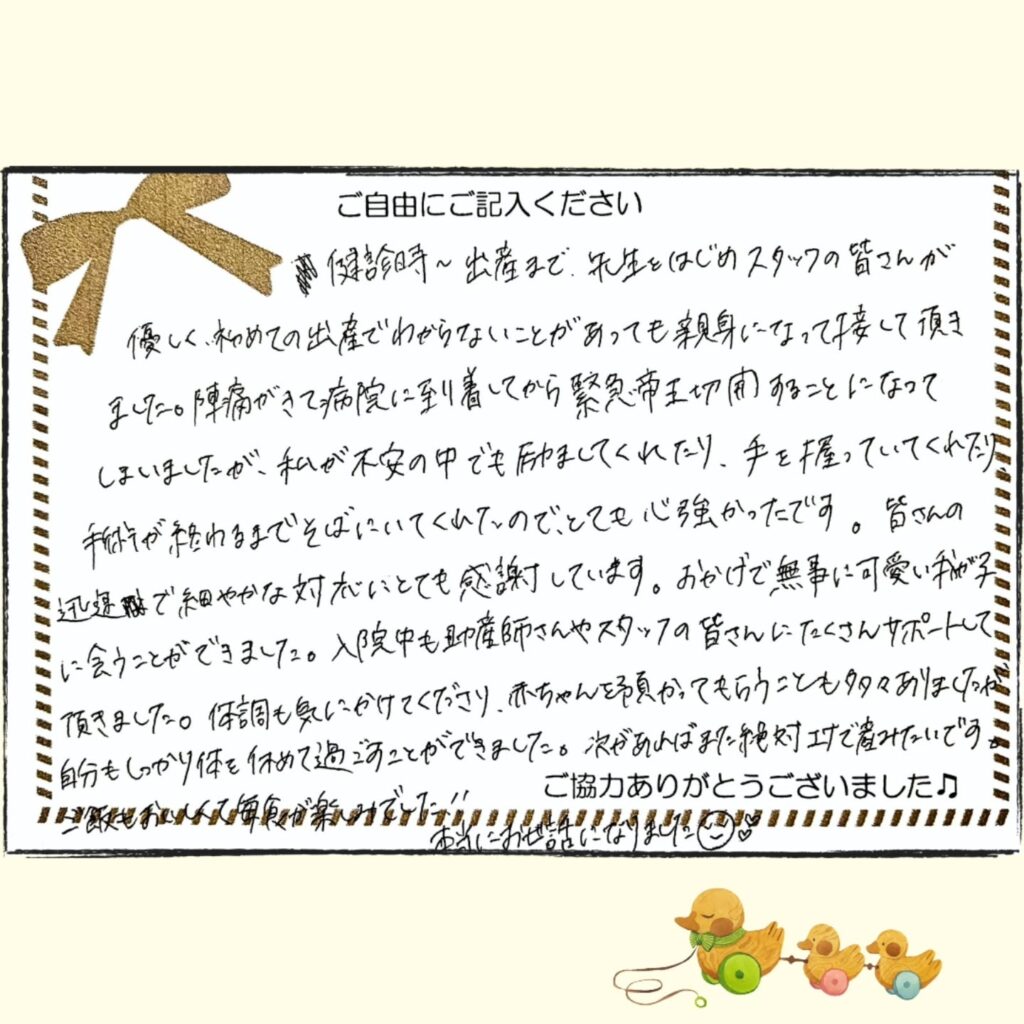 ご自由にご記入ください
健診時〜出産まで、先生をはじめスタッフの皆さんが
優しく、初めての出産でわからないことがあっても親身になって接して頂き
ました。陣痛がきて病院に到着してから緊急帝王切開することになって
しまいましたが、私が不安の中でも励ましてくれたり、手を握っていてくれたり、
手術が終わるまでそばにいてくれたので、とても心強かったです。皆さんの
迅速で細やかな対応にとても感謝しています。おかげで無事に可愛い我が子
に会うことができました。入院中も助産師さんやスタッフの皆さんにたくさんサポートして
頂きました。体調も気にかけてくださり、赤ちゃんを預かってもらうことも多々ありましたが
自分もしっかり体を休めて過ごすことができました。次があればまた絶対で産みたいです。
ご協力ありがとうございました♫
ご飯もおいしくて毎食が楽しみでした!!
本当にお世話になりました